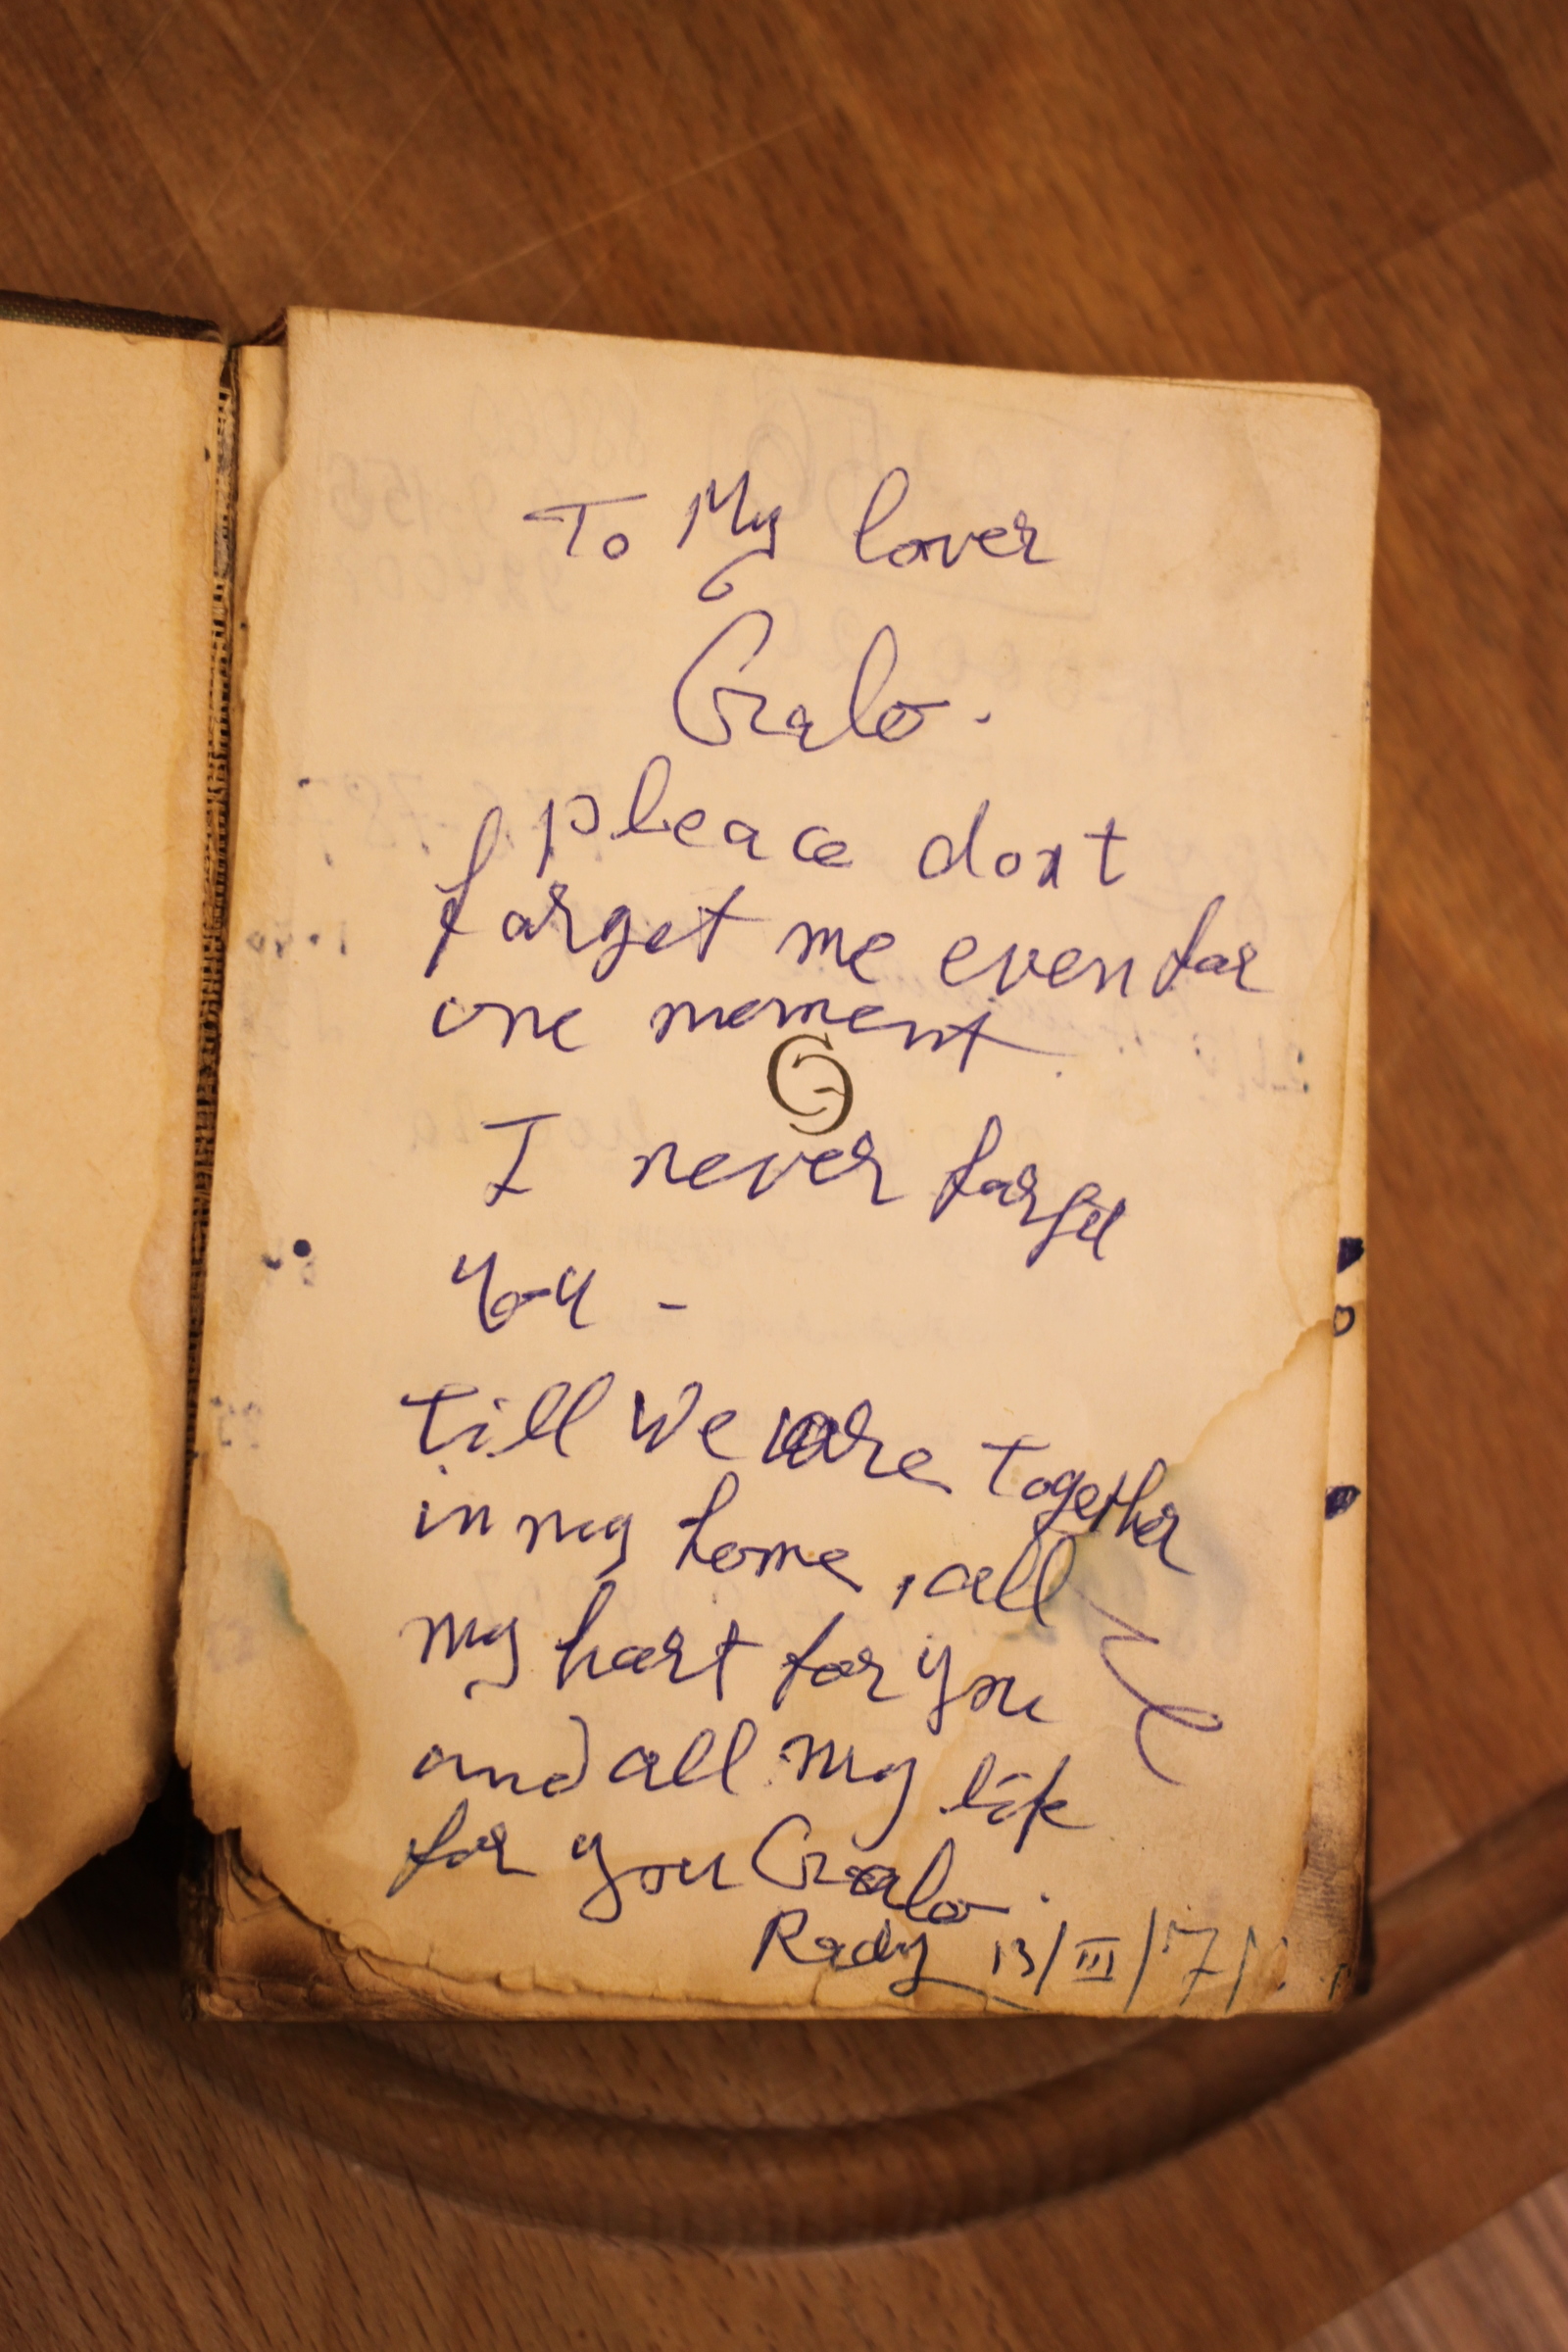 To My lover
Gralo.
pleace dont
forget me even for
one moment.
I never forget
you -
till We are together
in my home, all
my hart for you
and all my life
for you Gralo.
Rady 13/III/71.